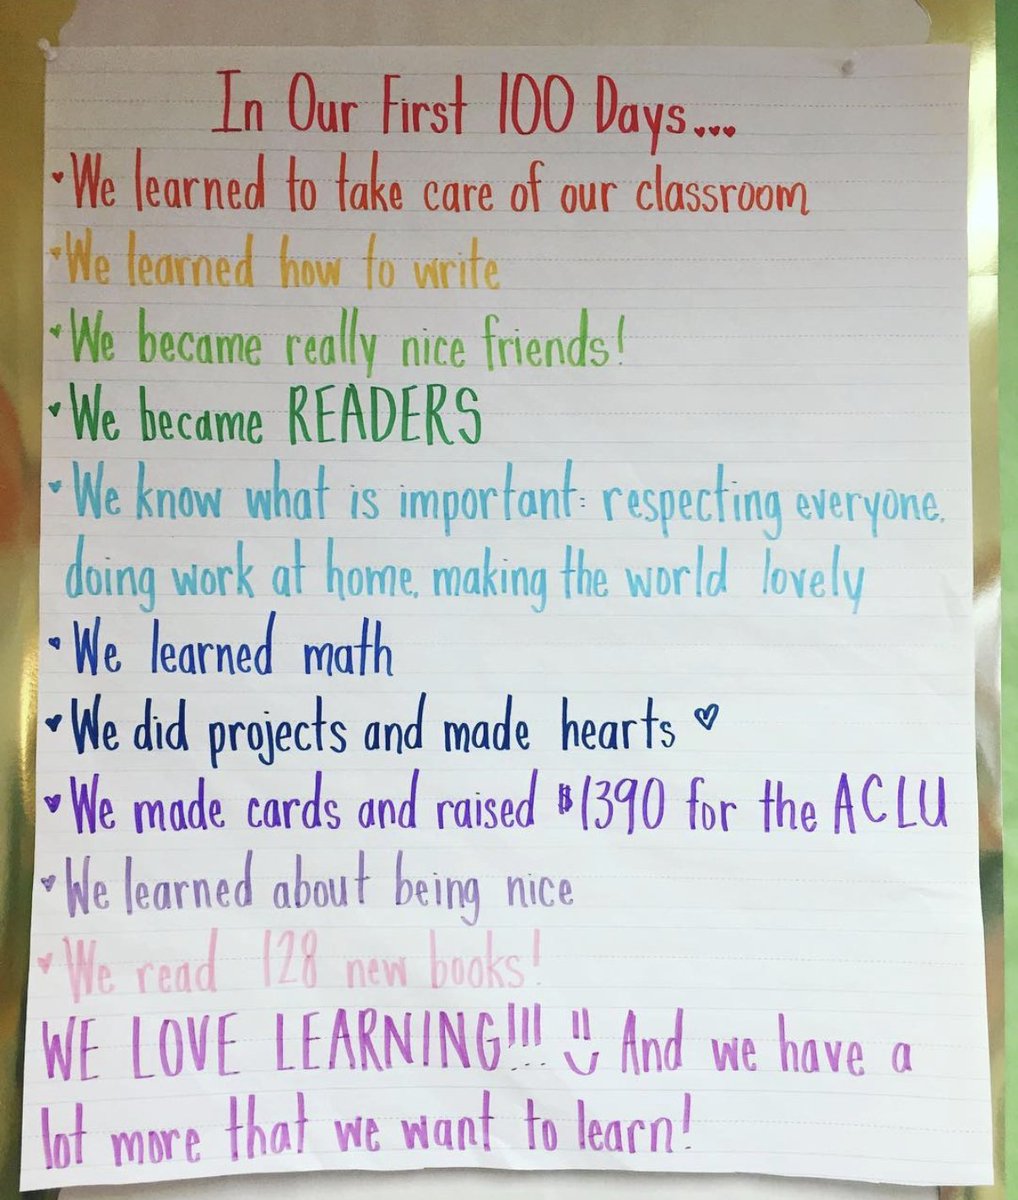 In Our First 100 Days...
We learned to take care of our classroom
We learned how to write
We became really nice friends!
We became READERS
We know what is important: respecting everyone,
doing work at home, making the world lovely
We learned math
We did projects and made hearts ♡
We made cards and raised $1390 for the ACLU
We learned about being nice
We read 128 new books!
WE LOVE LEARNING!!! And we have a
lot more that we want to learn!